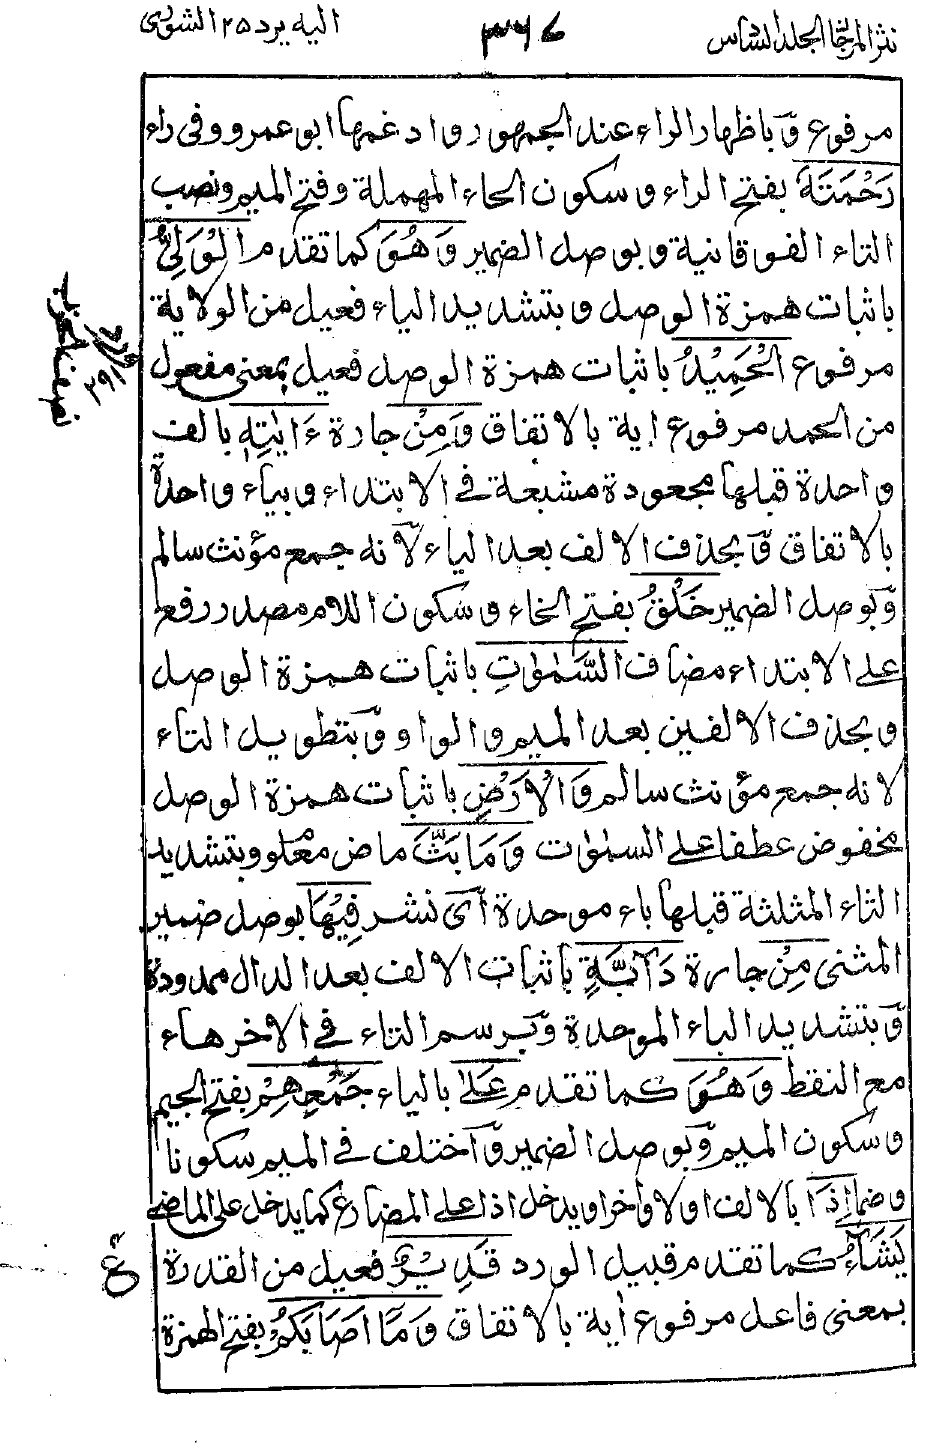 نثر المرجان الجلد السادس ٣٦٧ اليه يرد ٢٥ الشورى
مرفوع وباظهار الراء عند الجمهور وادغمها ابو عمرو وفى راء
رَحْمَتَهٗ بفتح الراء وسكون الحاء المهملة وفتح الميم ونصب
التاء الفوقانية وبوصل الضمير وَهُوَ كما تقدم الْوَلِيُّ
باثبات همزة الوصل وبتشديد الياء فعيل من الولاية
مرفوع الْحَمِيْدُ باثبات همزة الوصل فعيل بمعنى مفعول
من الحمد مرفوع اية بالاتفاق وَمِنْ جارة ءَايٰتِهٖ بالف
واحدة قبلها مجعودة مشبعة فى الابتداء وبياء واحدة
بالاتفاق وبحذف الالف بعد الياء لانه جمع مؤنث سالم
وبوصل الضمير خَلْقُ بفتح الخاء وسكون اللام مصدر رفع
على الابتداء مضاف السَّمٰوٰتِ باثبات همزة الوصل
وبحذف الالفين بعد الميم والواو وبتطويل التاء
لانه جمع مؤنث سالم وَالْاَرْضِ باثبات همزة الوصل
مخفوض عطفا على السمٰوٰت وَمَا بَثَّ ماض معلوم وبتشديد
الثاء المثلثة قبلها باء موحدة اى نشر فِيْهِمَا بوصل ضمير
المثنى مِنْ جارة دَآبَّةٍ باثبات الالف بعد الدال ممدودة
وبتشديد الباء الموحدة وبرسم التاء فى الاخر هاء
مع النقط وَهُوَ كما تقدم عَلٰى بالياء جَمْعِهِمْ بفتح الجيم
وسكون الميم وبوصل الضمير واختلف فى الميم سكونا
وضما اِذَا بالالف اولا واخرا ويدخل اذا على المضارع كما يدخل على الماضى
يَشَآءُ كما تقدم قبيل الورد قَدِيْرٌ فعيل من القدرة
بمعنى فاعل مرفوع اية بالاتفاق وَمَآ اَصَابَكُمْ بفتح الهمزة
نصف الحزب
ع